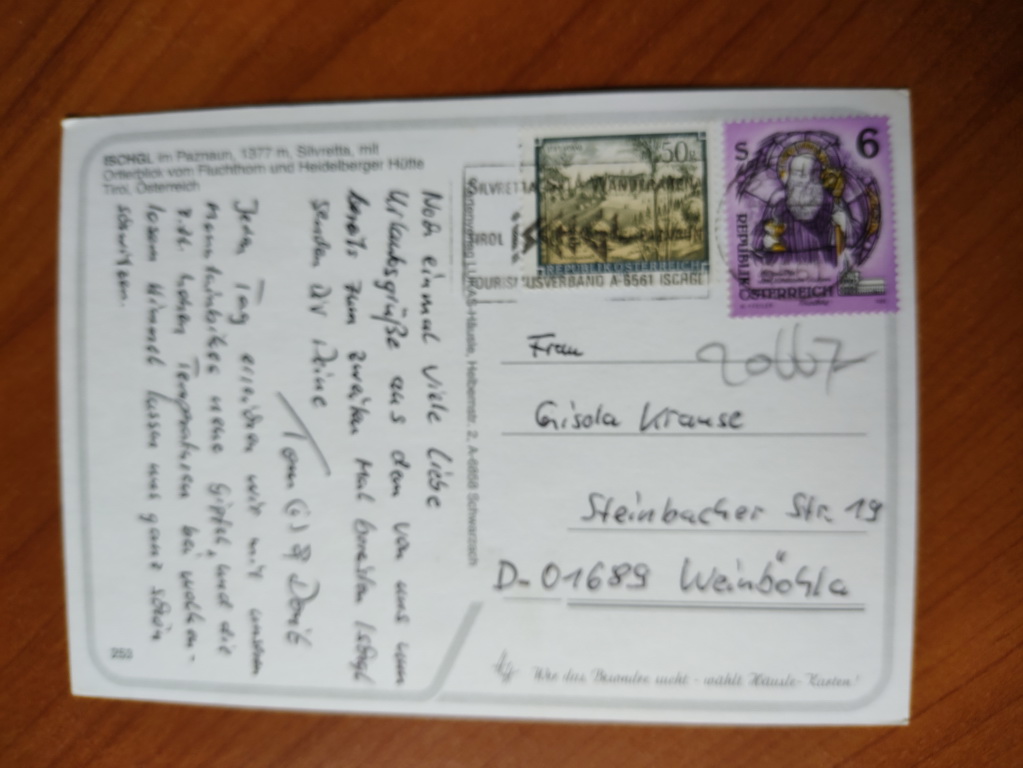 ISCHGL im Paznaun, 1377 m, Silvretta, mit
Ortlerblick vom Fluchthorn und Heidelberger Hütte
Tirol, Österreich
Noch einmal viele liebe
Urlaubsgrüße aus dem von uns nun
bereits zum zweiten Mal bereisten Ischgl
senden dir Deine
Tom(i) & Dorit
Jeden Tag erreichen wir mit unseren
Mountainbikes neue Gipfel, und die
z.Zt. hohen Temperaturen bei wolken-
losem Himmel lassen uns ganz schön
schwitzen.
253
Kartenverlag LUKAS-Häusle, Helbernstr. 2, A-6858 Schwarzach
50g
REPUBLIK ÖSTERREICH
S 6
REPUBLIK
ÖSTERREICH
SILVRETTA
WANDERN
TIROL
TOURISMUSVERBAND A-6561 ISCHGL
20667
Frau
Gisela Krause
Steinbacher Str. 19
D-01689 Weinböhla
Wer das Besondre sucht - wählt Häusle-Karten!